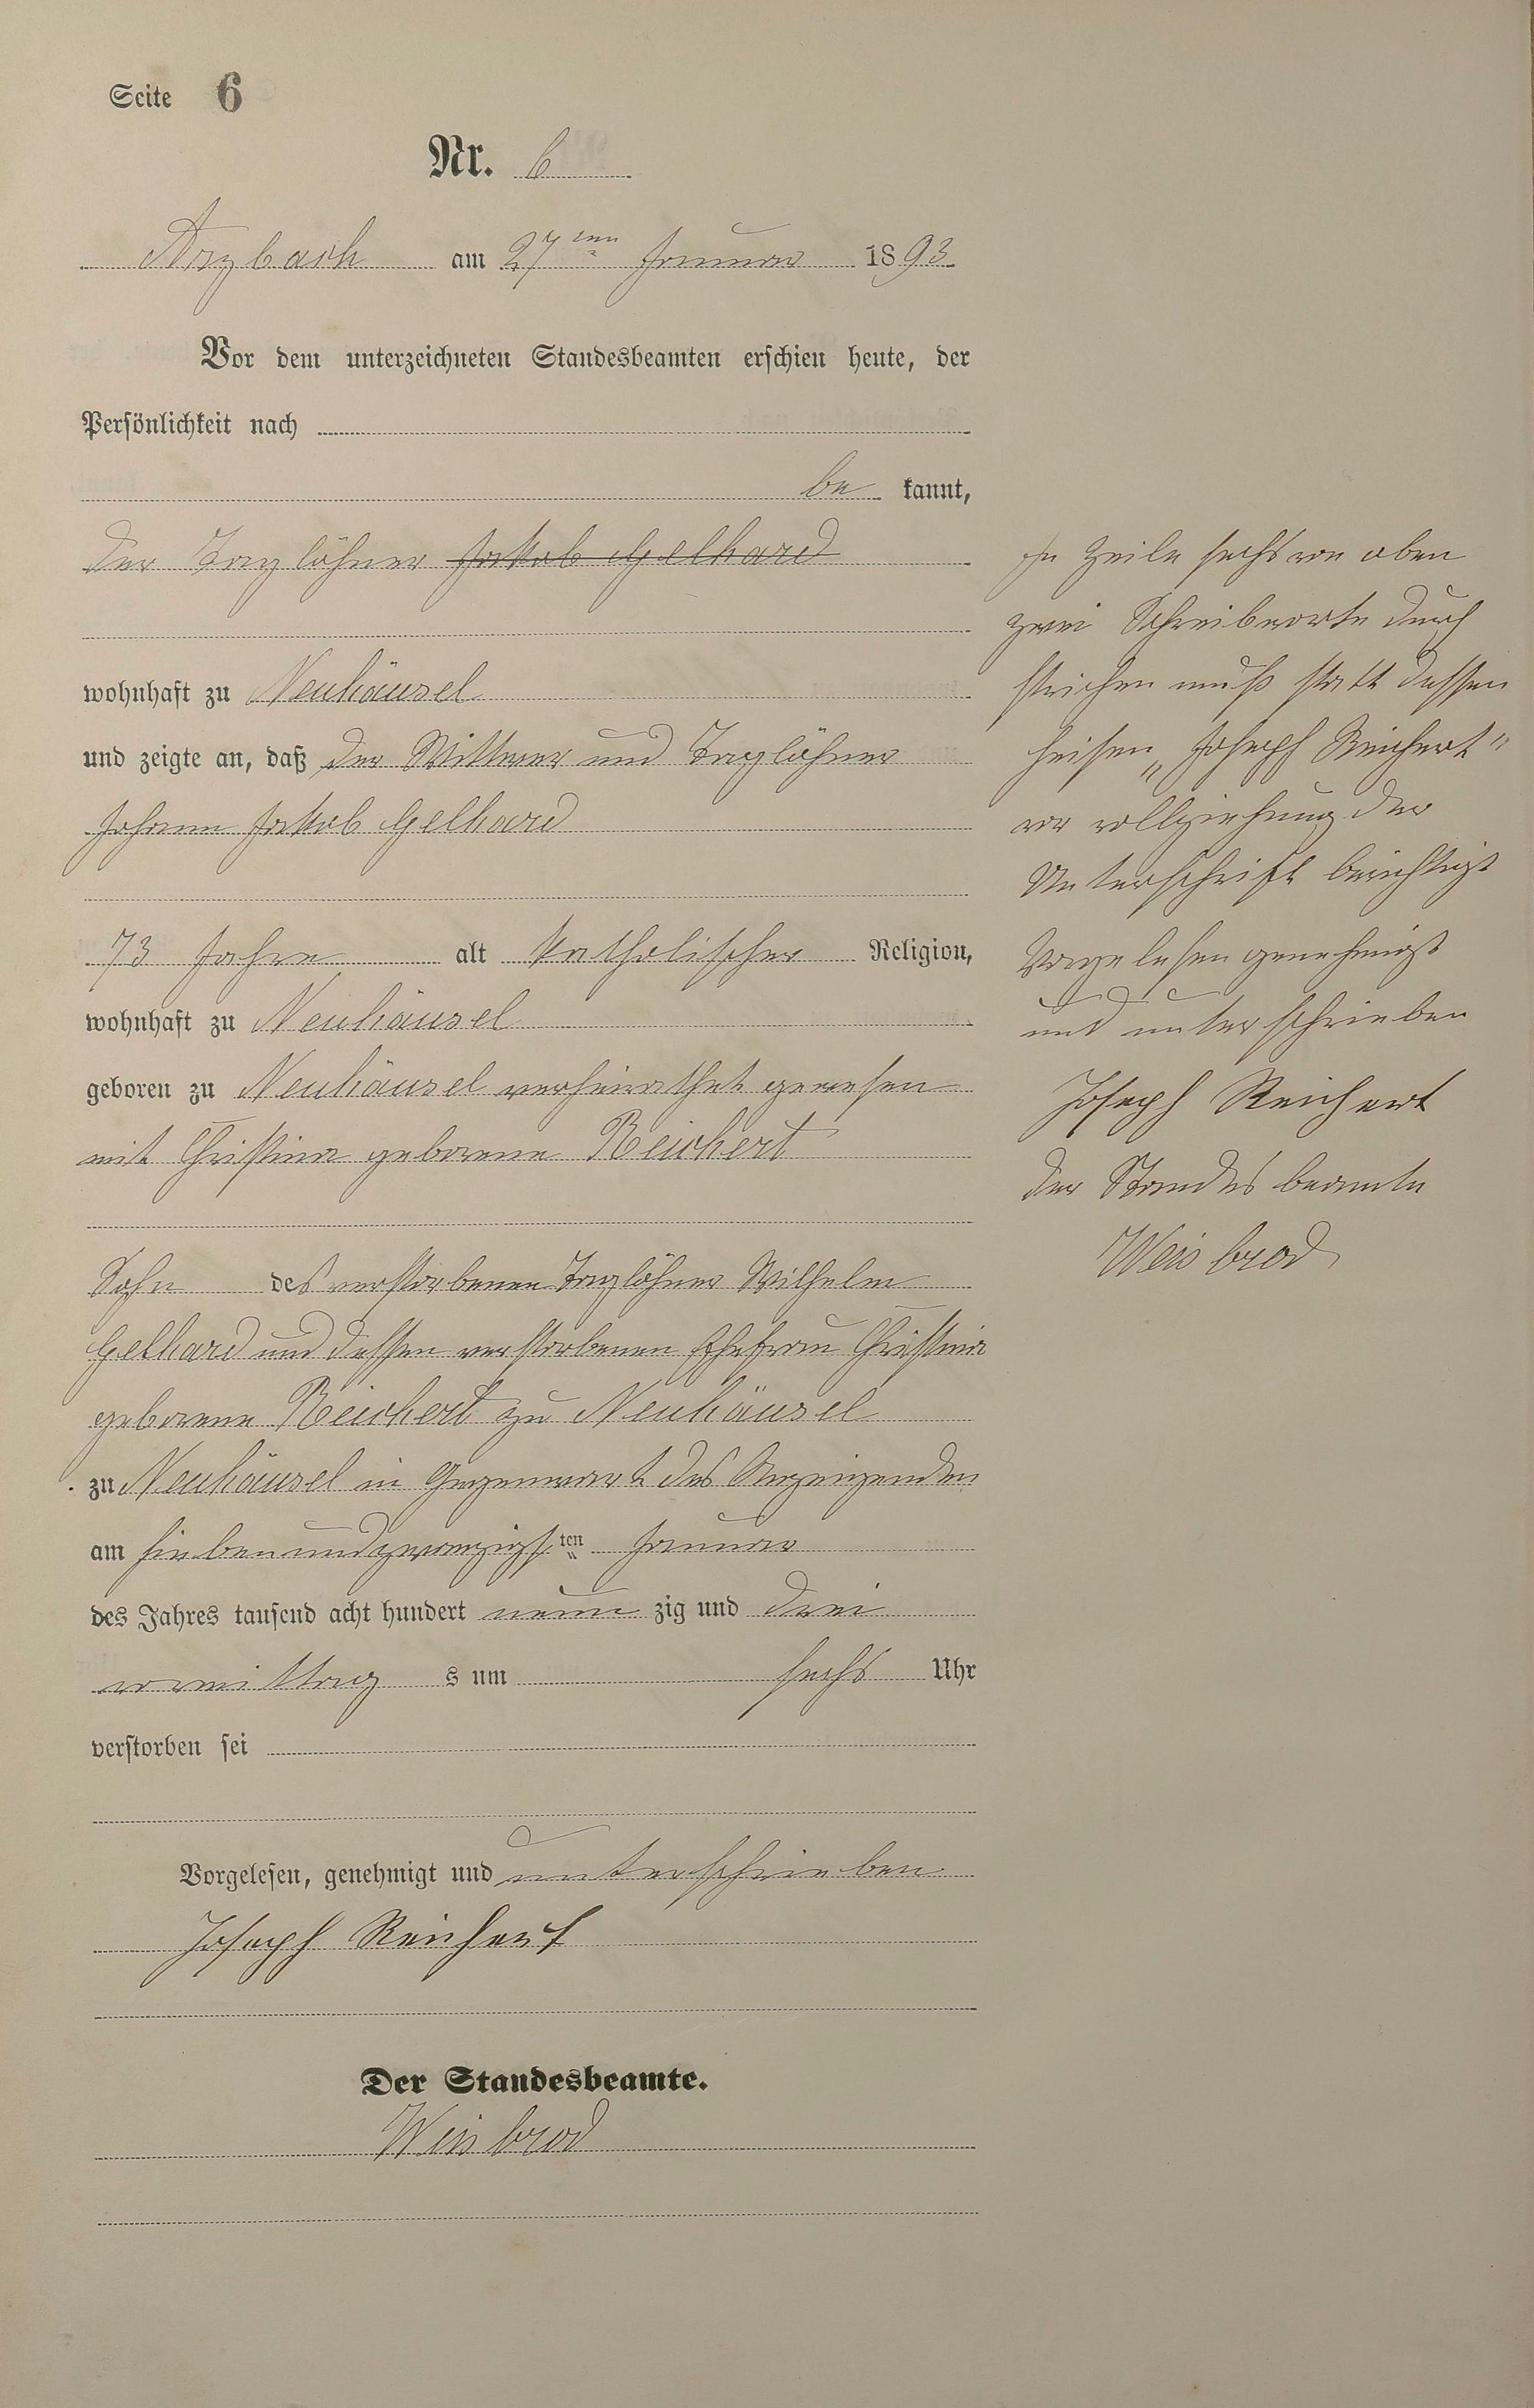 Seite 6
Nr. 6
Arzbach am 27ten Januar 1893
Vor dem unterzeichneten Standesbeamten erschien heute, der
Persönlichkeit nach
be kannt,
der Taglöhner Jakob Gelhard
wohnhaft zu Neuhäusel
und zeigte an, daß der Wittwer und Taglöhner
Johann Jakob Gelhard
73 Jahre alt katholischer Religion,
wohnhaft zu Neuhäusel
geboren zu Neuhäusel verheirathet gewesen
mit Christina geborene Reichert
Sohn des verstorbenen Taglöhner Wilhelm
Gelhard und dessen verstorbenen Ehefrau Christina
geborene Reichert zu Neuhäusel
zu Neuhäusel in Gegenwart des Anzeigenden
am siebenundzwanzigsten Januar
des Jahres tausend acht hundert neun zig und drei
vormittag s um sechs Uhr
verstorben sei
Vorgelesen, genehmigt und unterschrieben
Joseph Reichert
Der Standesbeamte.
Weisbrod
In Zeile sechs von oben
zwei Schreibworte durch
strichen muß statt dessen
heisen „Joseph Reichert"
vor vollziehung der
Unterschrift berichtigt
Vorgelesen genehmigt
und unterschrieben
Joseph Reichert
der Standes beamte
Weisbrod